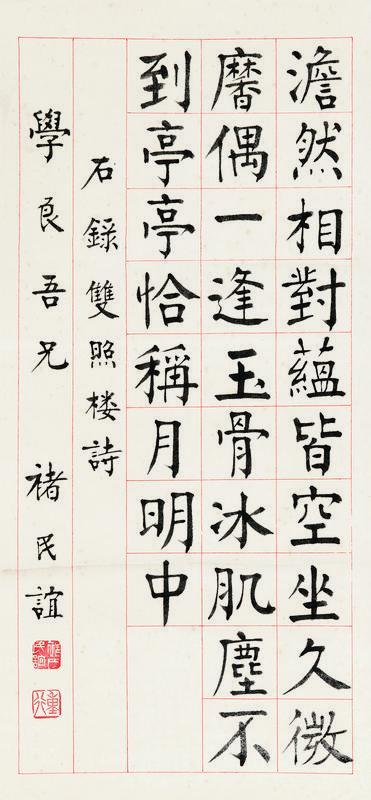 澹然相對蘊皆空坐久微
黁偶一逢玉骨冰肌塵不
到亭亭恰稱月明中
右錄雙照楼詩
學良吾兄 褚民誼
褚民誼
重行